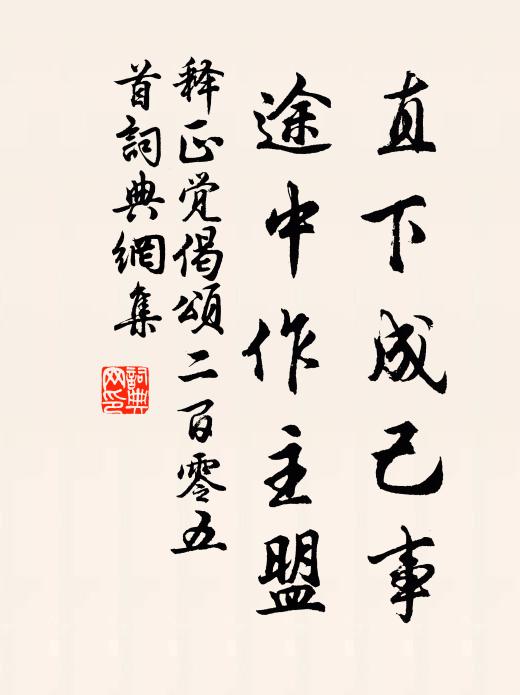 直下成己事
途中作主盟
释正觉偈頌二百零五
首詞典網集
詞典
网印